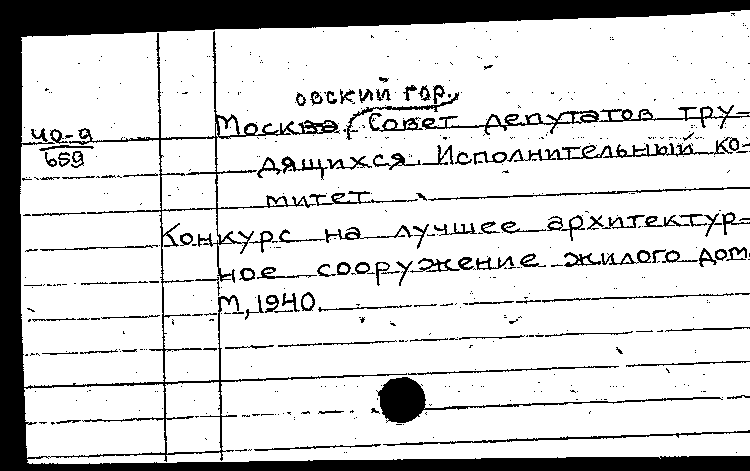 овский гор.
40-9
659
Москва, Совет депутатов тру-
дящихся. Исполнительный ко-
митет.
Конкурс на лучшее архитектур-
ное сооружение жилого дом
М, 1940.